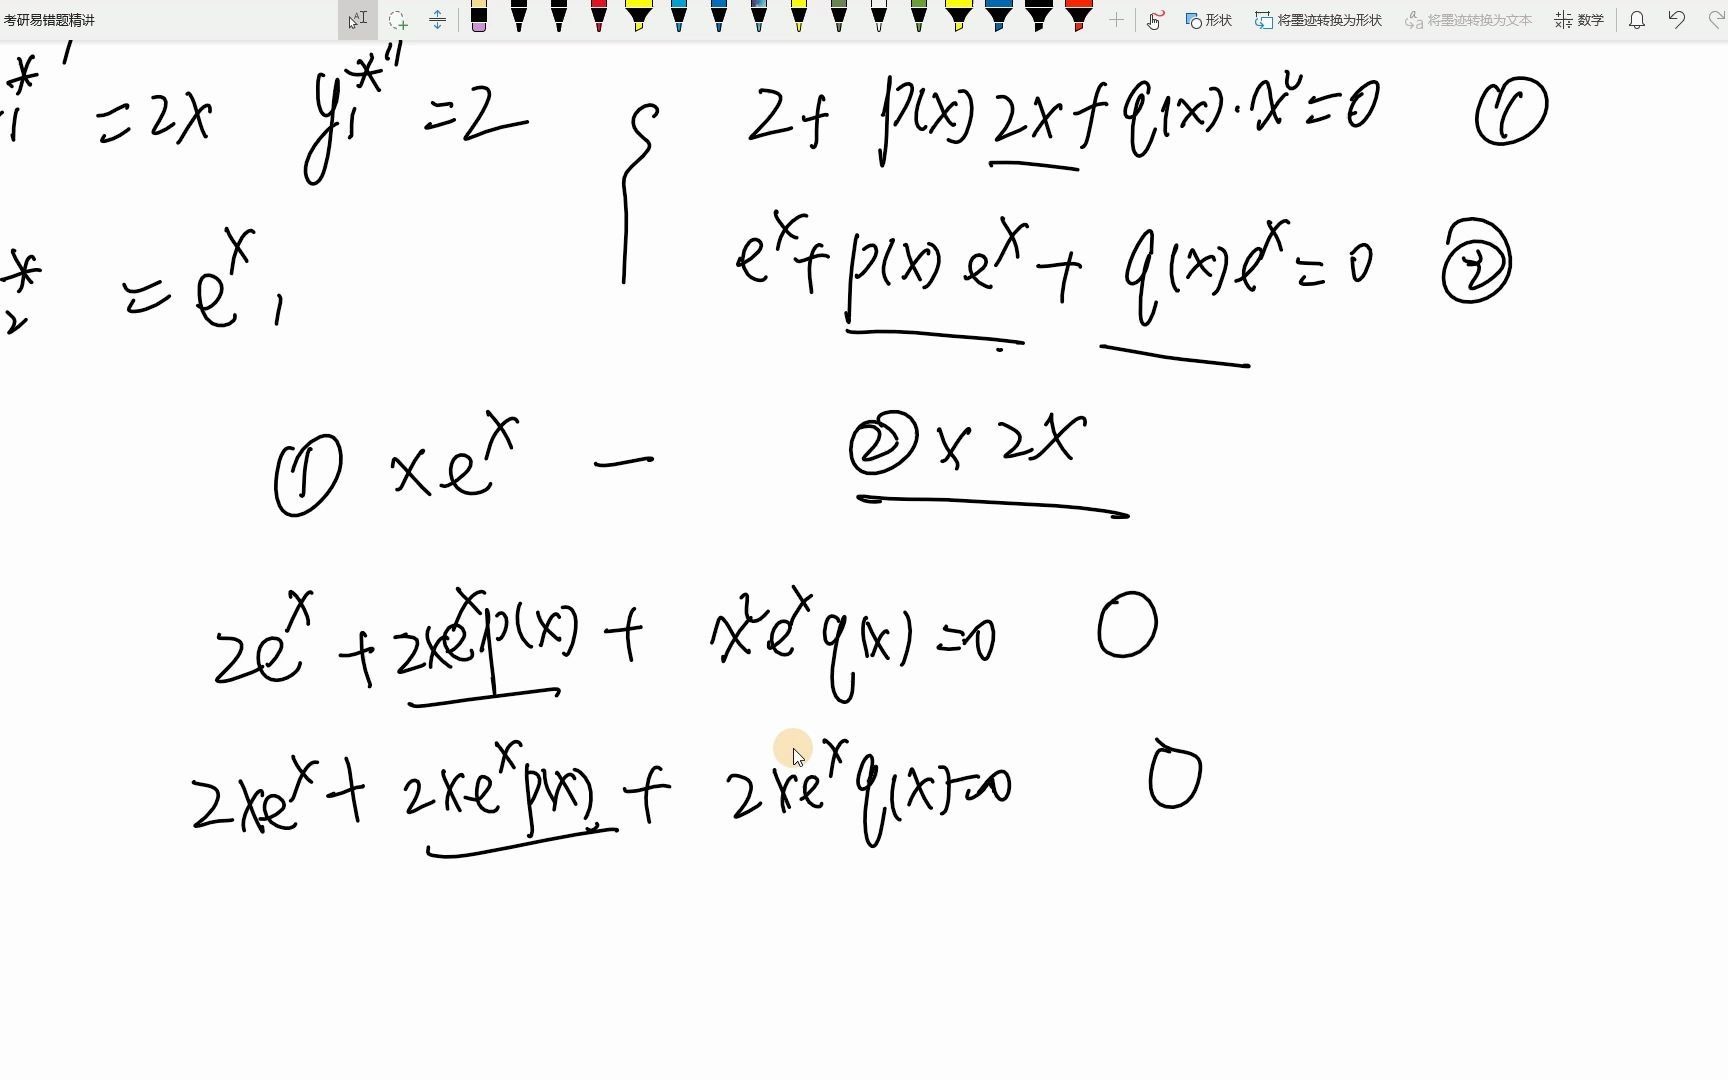 考研易错题精讲 形状 将墨迹转换为形状 将墨迹转换为文本 数学
₁*' = 2x y₁*'' = 2 { 2 + p(x) 2x + q(x)·x² = 0 ①
₂* = eˣ, eˣ + p(x) eˣ + q(x) eˣ = 0 ②
① x eˣ — ② x 2x
2eˣ + 2xeˣp(x) + x²eˣ q(x) = 0 0
2xeˣ + 2xeˣp(x) + 2xeˣ q(x) = 0 0